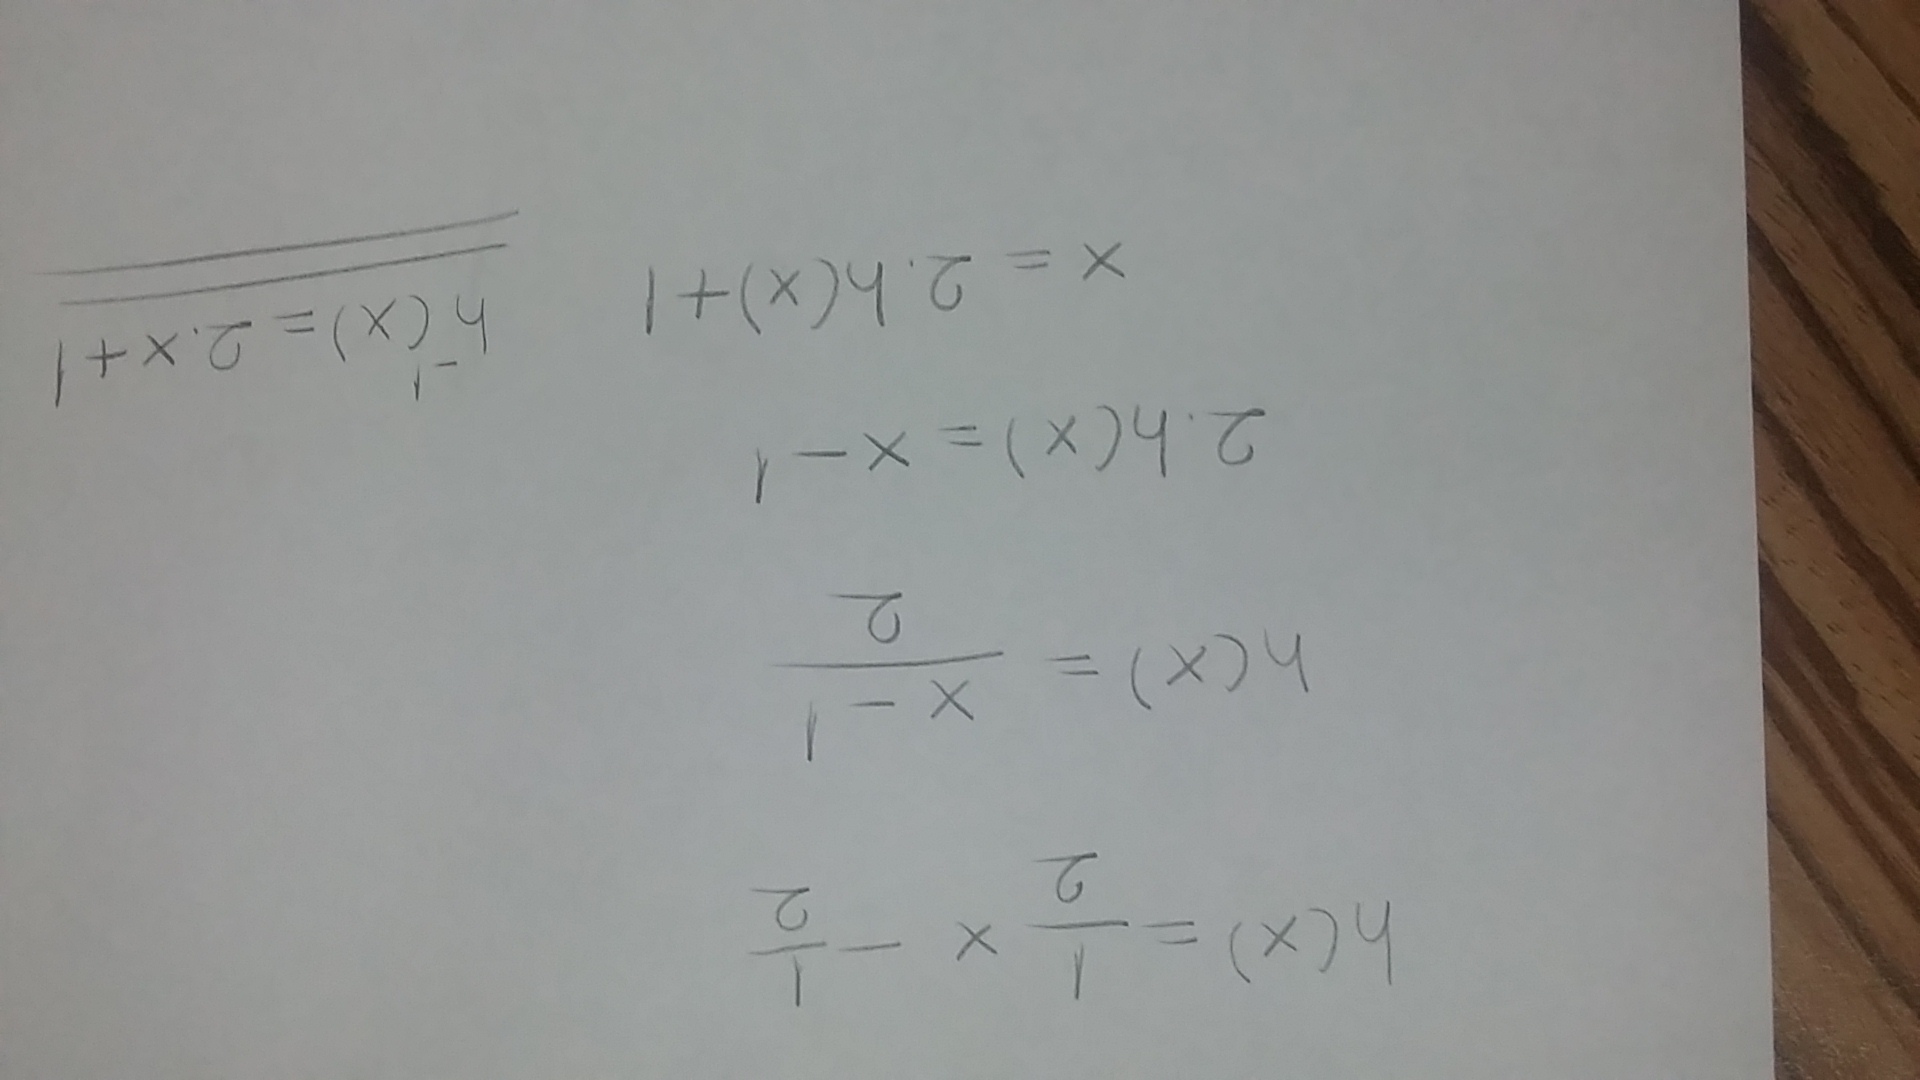 h(x) = 1/2 x - 1/2
h(x) = x - 1 / 2
2.h(x) = x - 1
x = 2.h(x) + 1
h⁻¹(x) = 2.x + 1